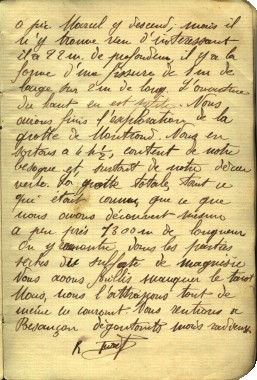 a pic Marcel y descend, mais il
n'y trouve rien d'intéressant
il a 22 m. de profondeur, il y a la
forme d'une fissure de 1 m de
large, sur 2 m de long. L'ouverture
du haut en est petite. Nous
avons finis l'exploration de la
grotte de Montrond. Nous en
sortons à 4 h ½, content de notre
besogne et surtout de notre décou
verte. La grotte totale tant ce
qui était connu que ce que
nous avons découvert mesure
a peu près 300 m de longueur
On y rencontre, dans les parties
sèches du sulfate de magnésie
Nous avons faillis manquer le train
Mais, nous l'attrapons tout de
même en courant. Nous rentrons a
Besançon dégoutants mais
R.